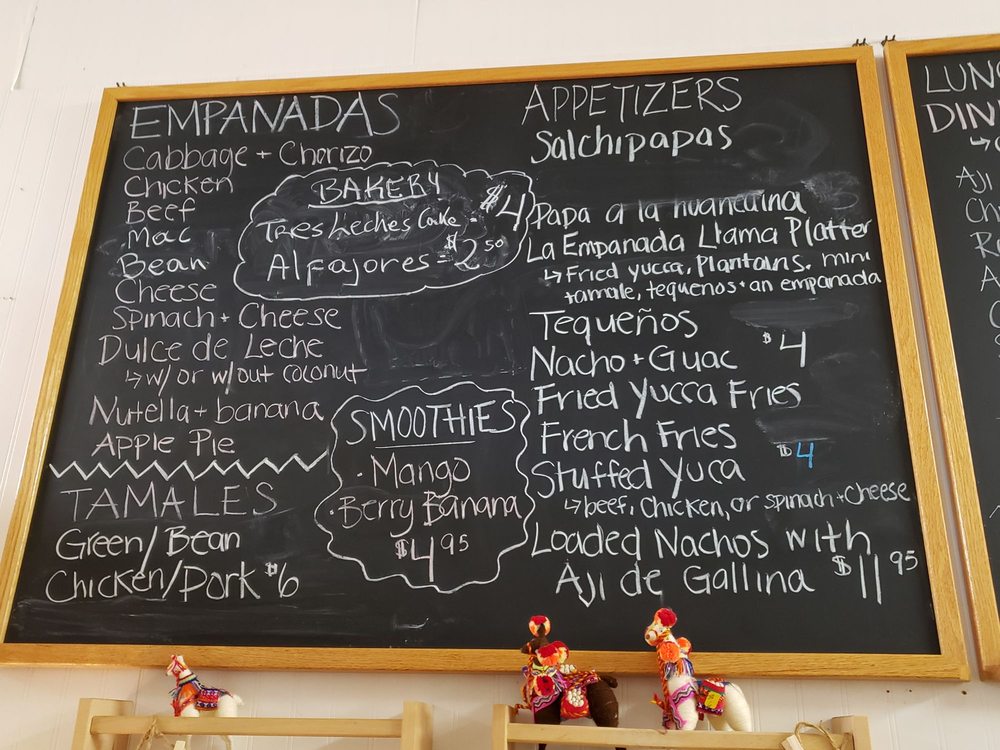 EMPANADAS
Cabbage + Chorizo
Chicken
Beef
Mac
Bean
Cheese
Spinach + Cheese
Dulce de Leche
↳ w/ or w/out coconut
Nutella + banana
Apple Pie
TAMALES
Green/Bean
Chicken/Pork $6
BAKERY
Tres Leches Cake = $4
Alfajores = $2.50
SMOOTHIES
· Mango
· Berry Banana
$4.95
APPETIZERS
Salchipapas
Papa a la huancaina
La Empanada Llama Platter
↳ Fried yucca, Plantains, mini
tamale, tequenos + an empanada
Tequeños
$4
Nacho + Guac
Fried Yucca Fries
French Fries
$4
Stuffed Yuca
↳ beef, Chicken, or Spinach + Cheese
Loaded Nachos with
Aji de Gallina $11.95
LUN
DIN
Aji
Ch